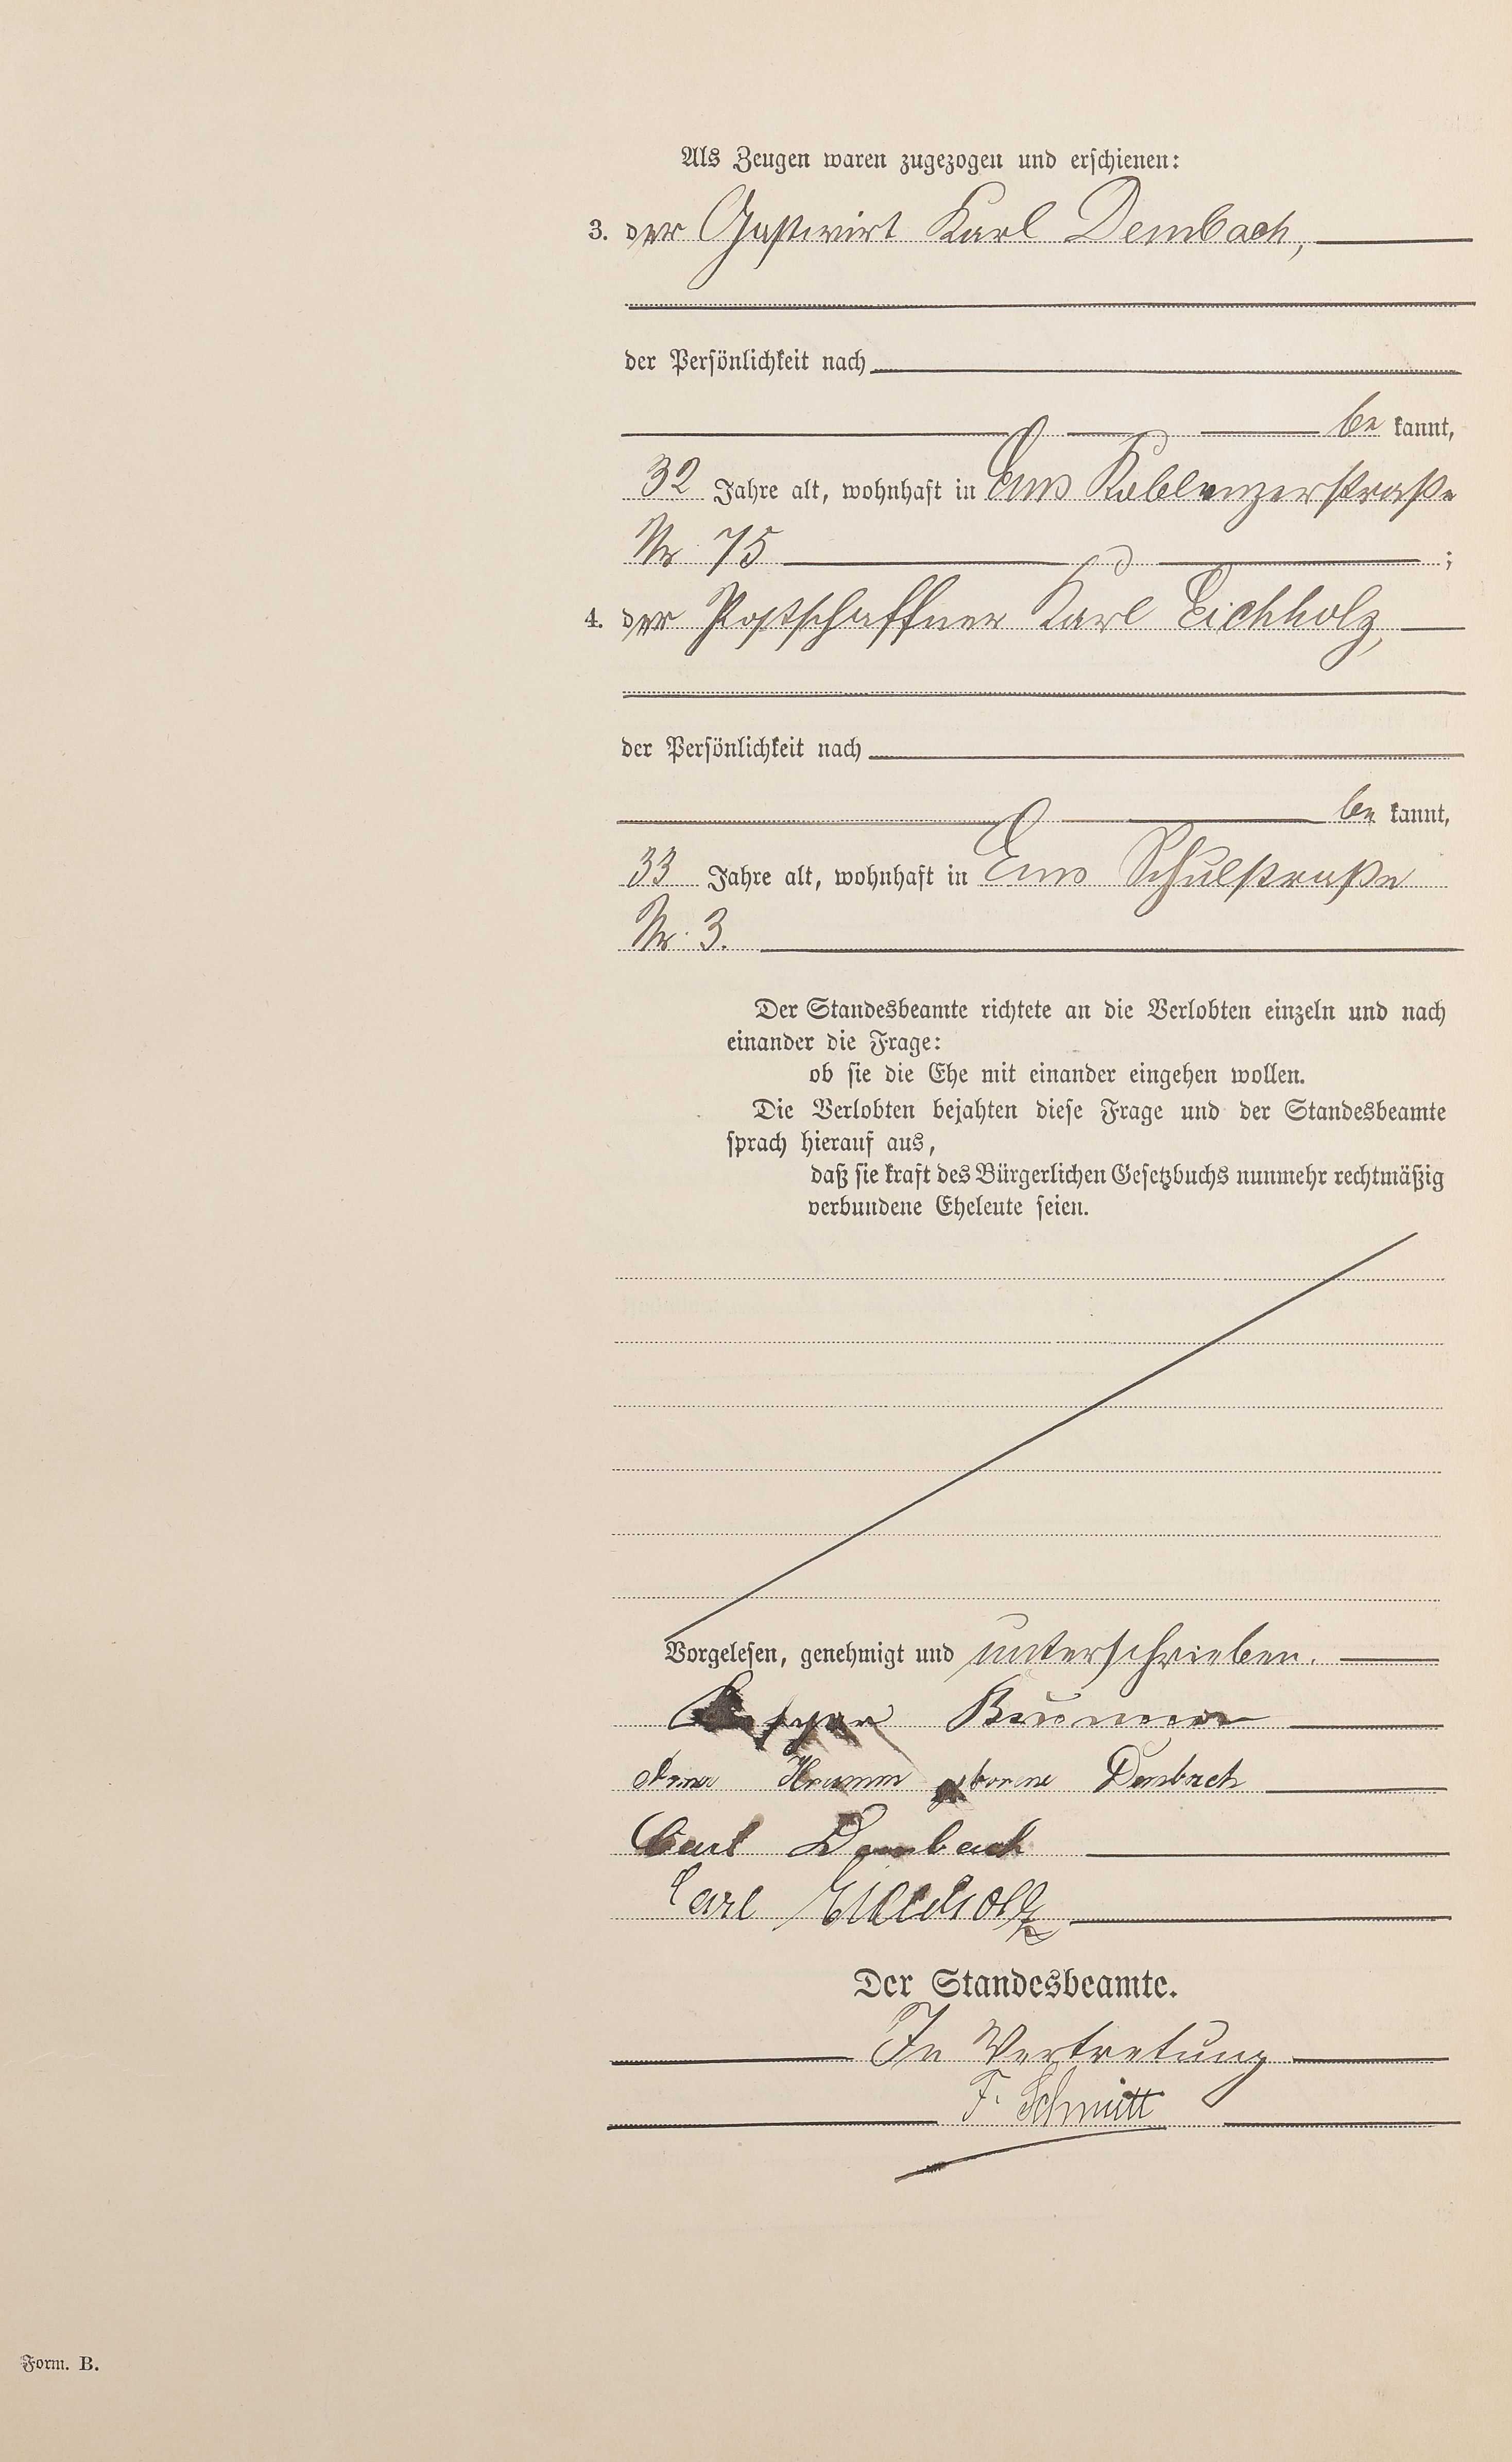 Als Zeugen waren zugezogen und erschienen:
3. der Gastwirt Karl Dembach,
der Persönlichkeit nach
be kannt,
32 Jahre alt, wohnhaft in Ems Koblenzerstraße
Nr. 75 ;
4. der Postschaffner Karl Eichholz,
der Persönlichkeit nach
be kannt,
33 Jahre alt, wohnhaft in Ems Schulstraße
Nr. 3.
Der Standesbeamte richtete an die Verlobten einzeln und nach
einander die Frage:
ob sie die Ehe mit einander eingehen wollen.
Die Verlobten bejahten diese Frage und der Standesbeamte
sprach hierauf aus,
daß sie kraft des Bürgerlichen Gesetzbuchs nunmehr rechtmäßig
verbundene Eheleute seien.
Vorgelesen, genehmigt und unterschrieben.
Anna Kramm geborene Dembach
Carl Dembach
Carl Eichholz
Der Standesbeamte.
In Vertretung
F. Schmitt
Form. B.